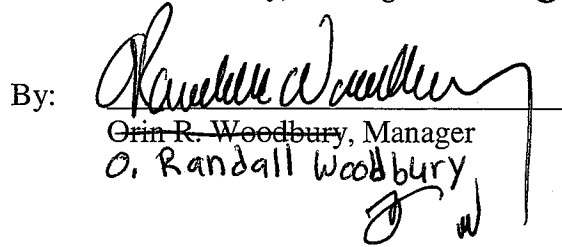 By: ORandall Woodbury
Orin R. Woodbury, Manager
O. Randall Woodbury